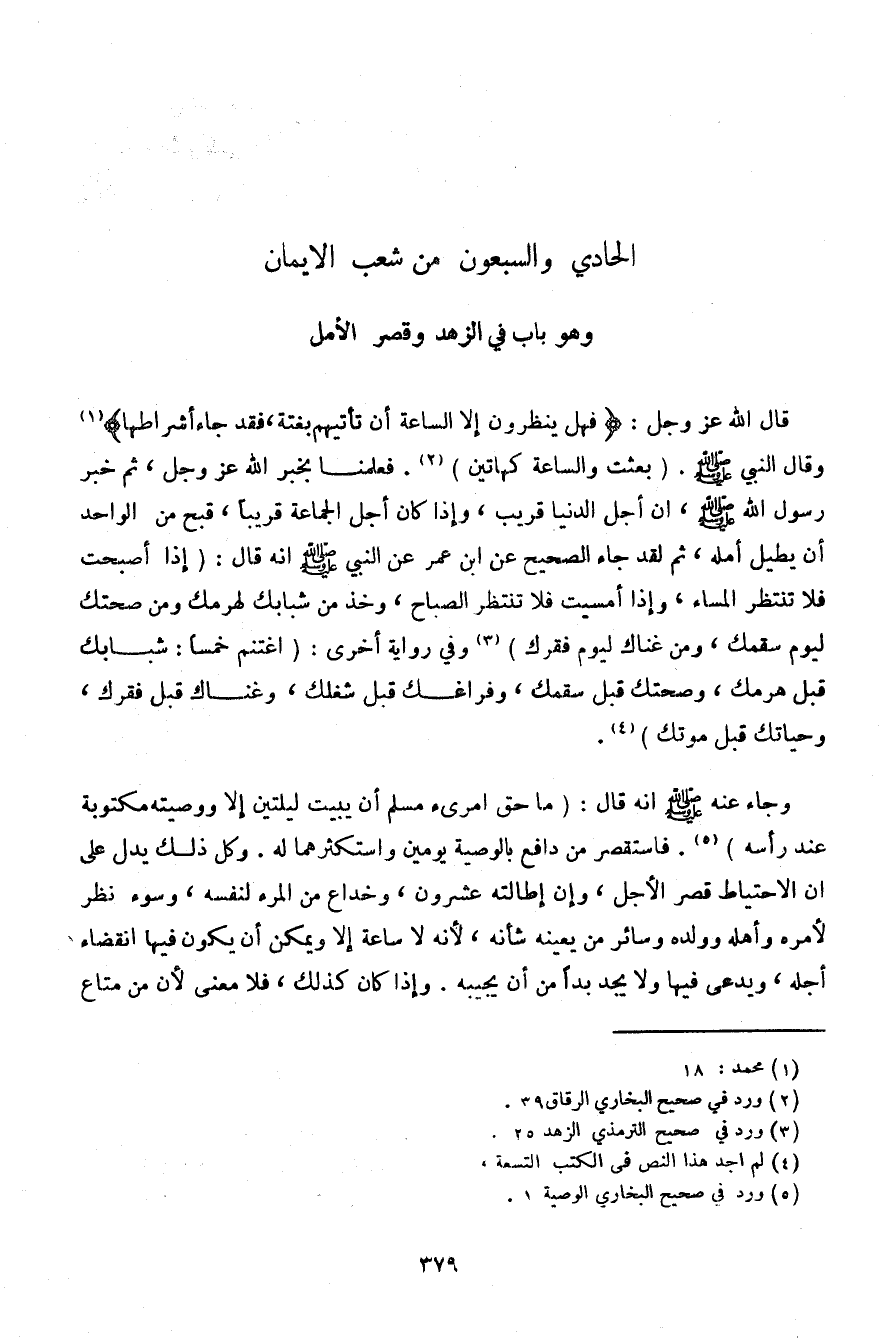 الحادي والسبعون من شعب الايمان
وهو باب في الزهد وقصر الأمل
قال الله عز وجل : ﴿ فهل ينظرون إلا الساعة أن تأتيهم بغتة، فقد جاء أشراطها﴾(١)
وقال النبي ﷺ . ( بعثت والساعة كهاتين ) (٢) . فعلمنـــا بخبر الله عز وجل ، ثم خبر
رسول الله ﷺ ، ان أجل الدنيا قريب ، وإذا كان أجل الجماعة قريباً ، قبح من الواحد
أن يطيل أمله ، ثم لقد جاء الصحيح عن ابن عمر عن النبي ﷺ انه قال : ( إذا أصبحت
فلا تنتظر المساء ، وإذا أمسيت فلا تنتظر الصباح ، وخذ من شبابك لهرمك ومن صحتك
ليوم سقمك ، ومن غناك ليوم فقرك ) (٣) وفي رواية أخرى : ( اغتنم خمساً : شبـــابك
قبل هرمك ، وصحتك قبل سقمك ، وفراغـــك قبل شغلك ، وغنـــاك قبل فقرك ،
وحياتك قبل موتك ) (٤) .
وجاء عنه ﷺ انه قال : ( ما حق امرىء مسلم أن يبيت ليلتين إلا ووصيته مكتوبة
عند رأسه ) (٥) . فاستقصر من دافع بالوصية يومين واستكثرهما له . وكل ذلــك يدل على
ان الاحتياط قصر الأجل ، وإن إطالته عشرون ، وخداع من المرء لنفسه ، وسوء نظر
لأمره وأهله وولده وسائر من يعينه شأنه ، لأنه لا ساعة إلا ويمكن أن يكون فيها انقضاء
أجله ، ويدعى فيها ولا يجد بداً من أن يجيبه . وإذا كان كذلك ، فلا معنى لأن من متاع
(١) محمد : ١٨
(٢) ورد في صحيح البخاري الرقاق ٣٩ .
(٣) ورد في صحيح الترمذي الزهد ٢٥ .
(٤) لم اجد هذا النص في الكتب التسعة ،
(٥) ورد في صحيح البخاري الوصية ١ .
٣٧٩